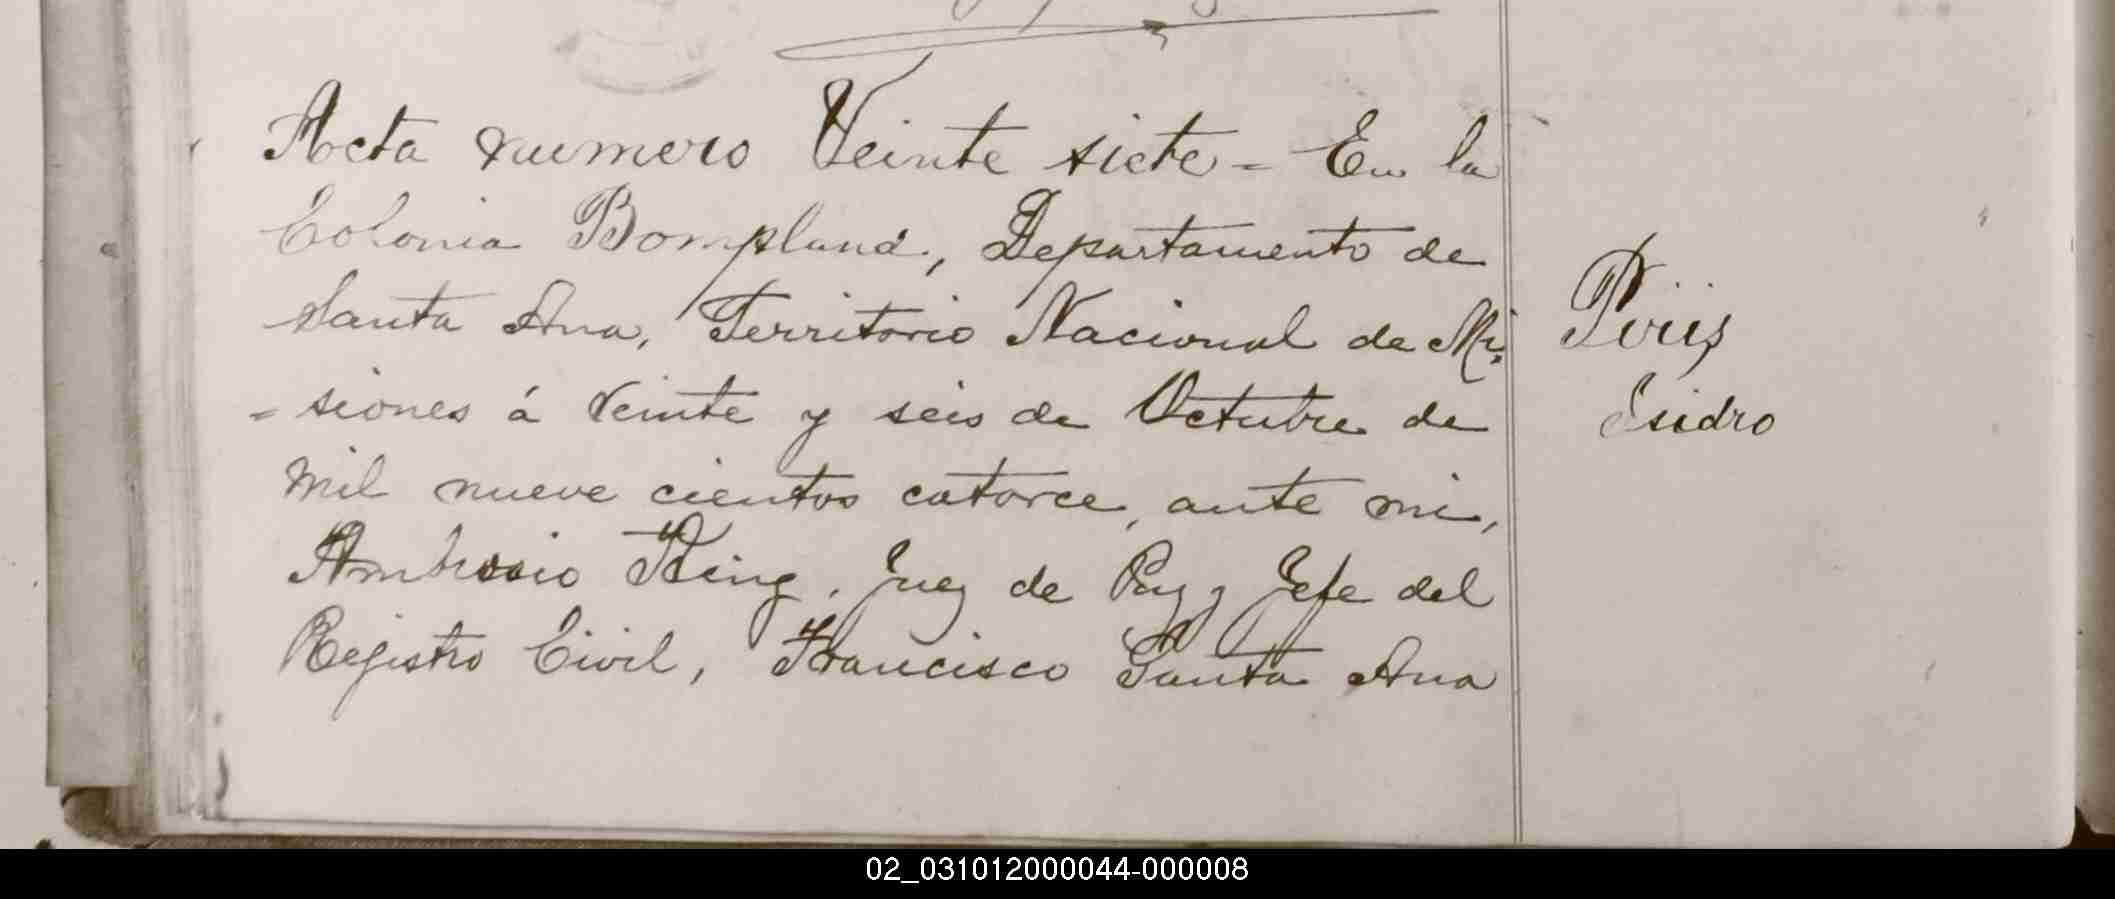 Acta numero Veinte siete - En la
Colonia Bompland, Departamento de
Santa Ana, Territorio Nacional de Mi
= siones á Veinte y seis de Octubre de
mil nueve cientos catorce, ante mi,
Ambrosio King, Juez de Paz y Jefe del
Registro Civil, Francisco Santa Ana
Piris
Isidro
02_031012000044-000008